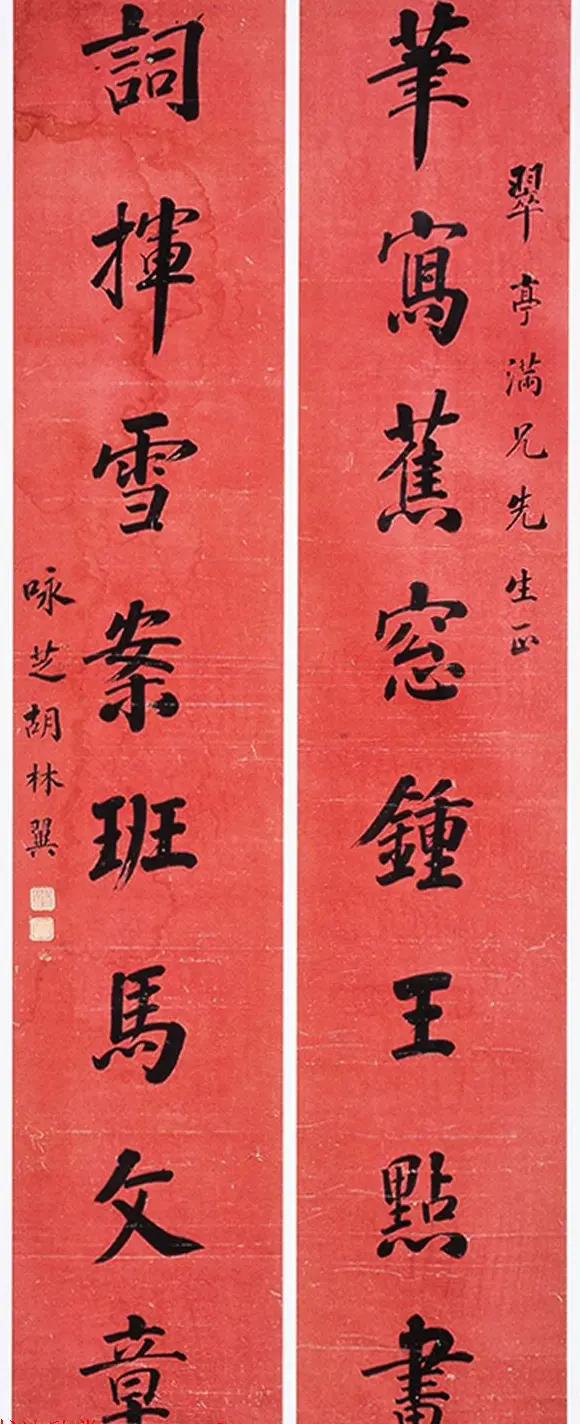 翠亭滿兄先生正
筆寫蕉窓鍾王點
詞揮雪案班馬文章
咏芝胡林翼